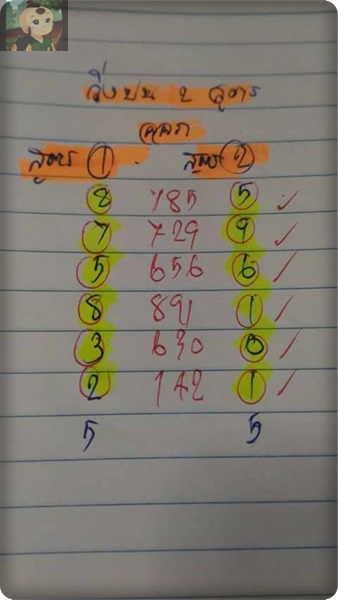 วิ่งบน 2 สูตร
สูตร 1 สูตร 2
8 785 5
7 729 9
5 656 6
8 891 1
3 630 0
2 142 1
5 5